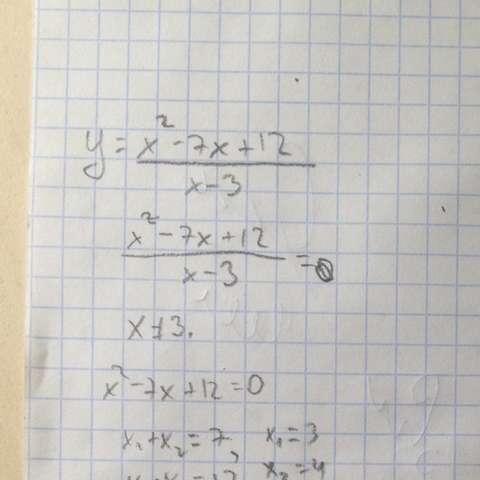 y = (x² - 7x + 12) / (x - 3)
(x² - 7x + 12) / (x - 3) = 0
x ≠ 3.
x² - 7x + 12 = 0
x₁ + x₂ = 7, x₁ = 3
x₂ = 4